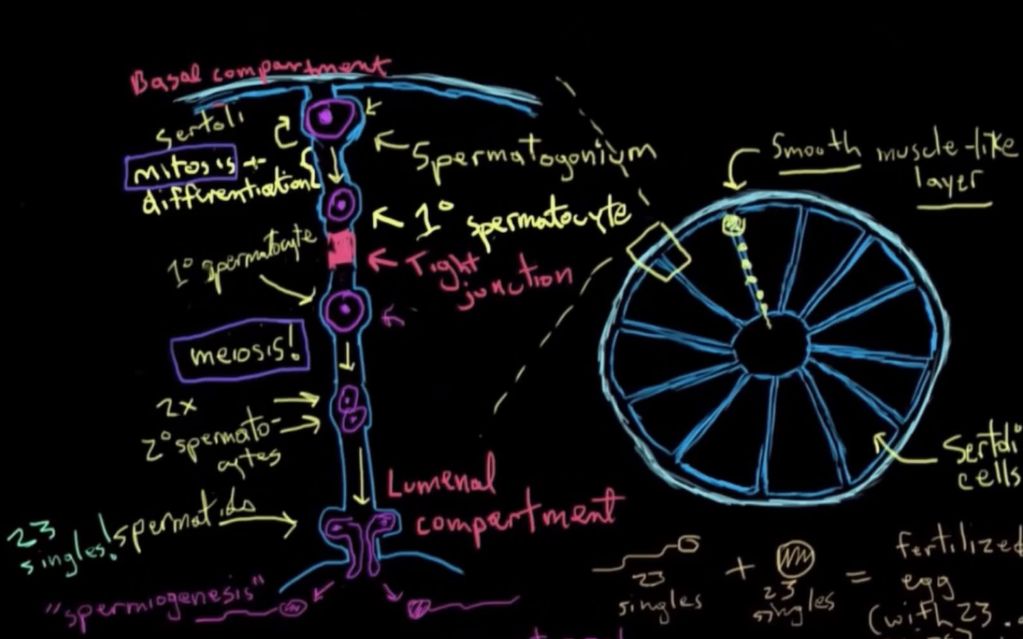 Basal compartment
Sertoli
mitosis +
differentiation
Spermatogonium
1° spermatocyte
1° spermatocyte
Tight
junction
meiosis!
2x
2° spermato-
cytes
Lumenal
compartment
spermatids
23
singles!
"spermiogenesis"
Smooth muscle-like
layer
Sertoli
cells
23
singles
+
23
singles
=
fertilized
egg
(with 23